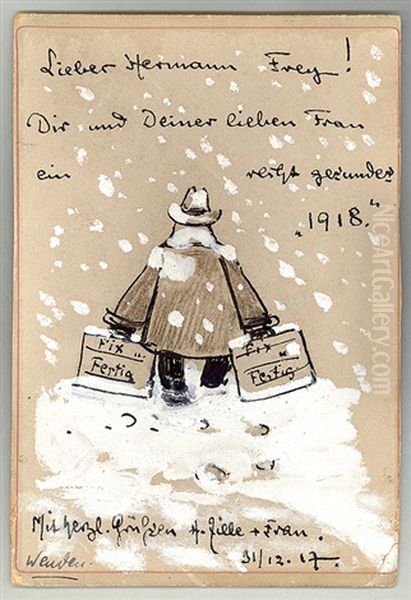 Lieber Hermann Frey!
Dir und Deiner lieben Frau
ein recht gesundes
„1918.“
Fix „
Fertig
Fix „
Fertig
Mit herzl. Grüßen H. Zille + Frau.
31/12.17.
Wenden
NiceArtGallery.com